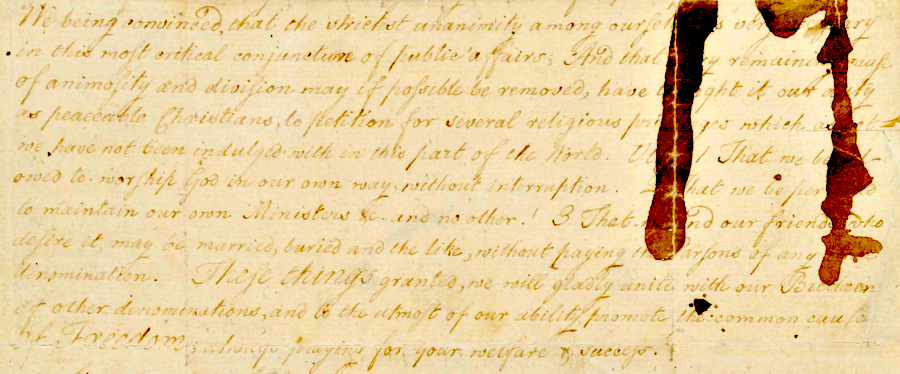 We being convinced, that, the strictest unanimity among
in this most critical conjuncture of public affairs; And that remaining cause
of animosity and division may if possible be removed, have thought it our duty
as peaceable Christians, to petition for several religious which as yet
we have not been indulged with in this part of the World. That we be al-
owed to worship God in our own way, without interruption. that we be
to maintain our own Ministers &c. and no other! 3 That and our friends who
desire it, may be married, buried and the like, without paying the Parsons of any
dinomination. These things granted, we will gladly unite with our Brethren
of other denominations, and to the utmost of our ability promote the common cause
of Freedom, always praying for your welfare & success.